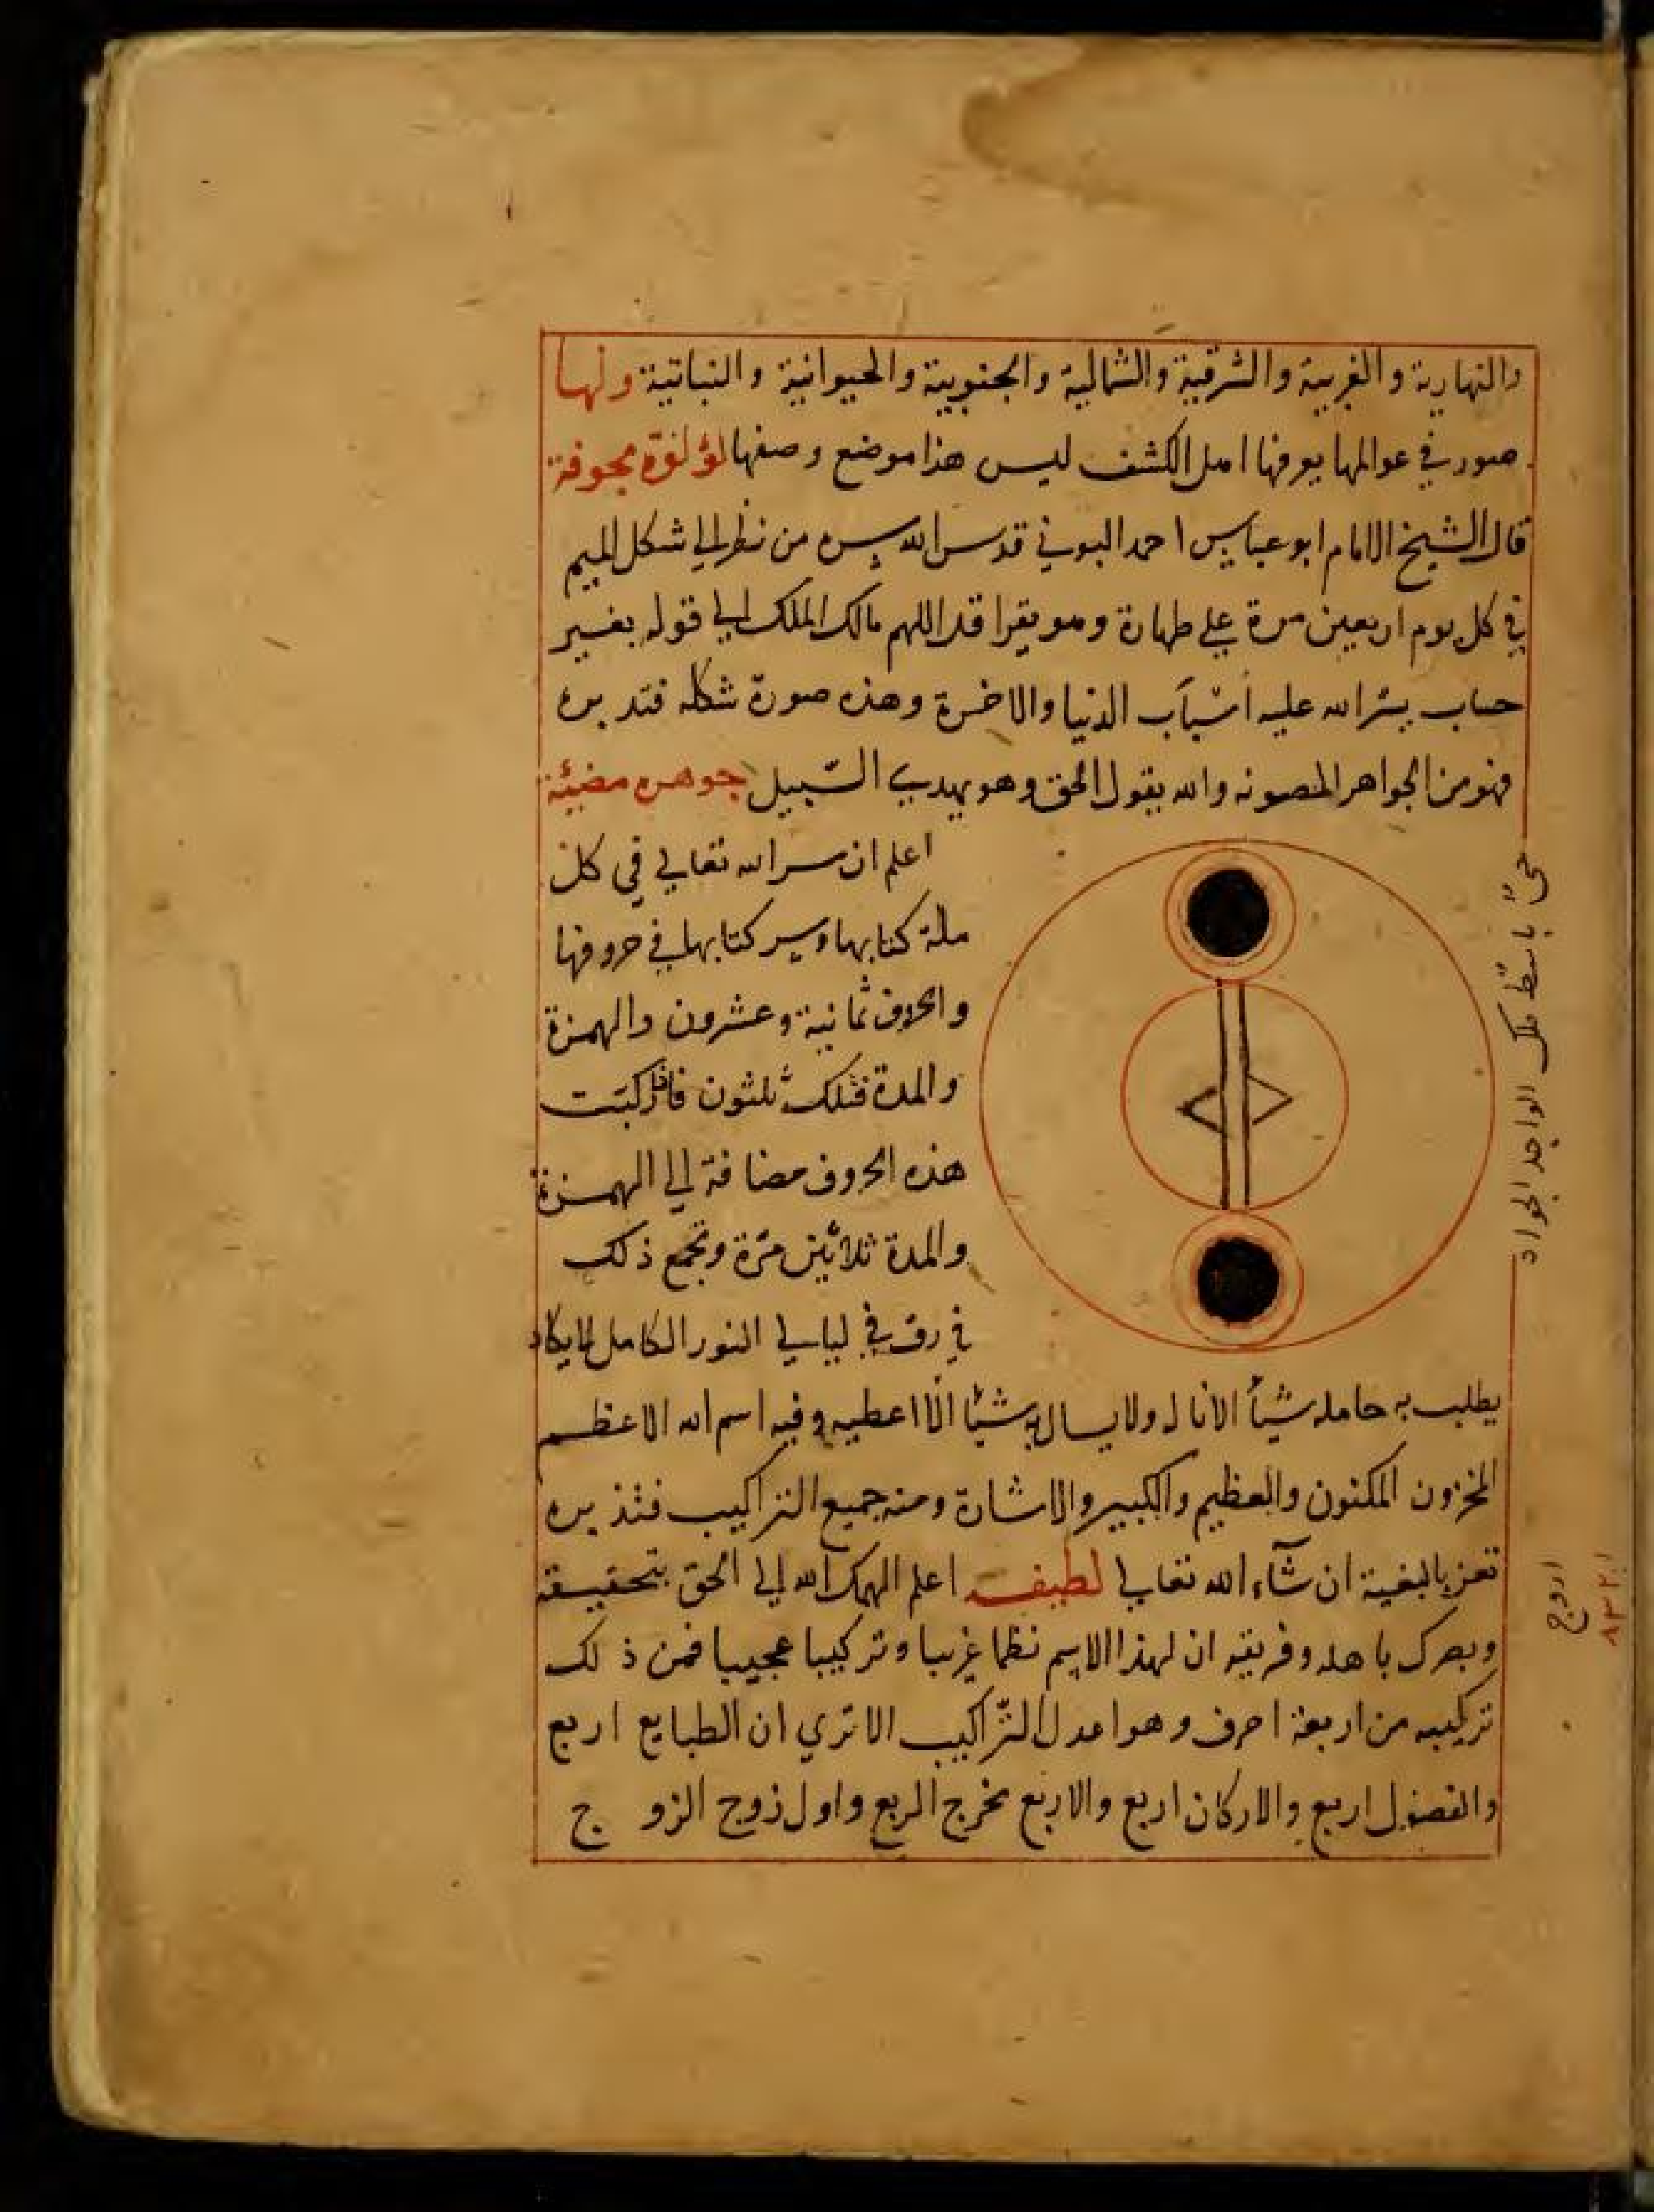 والنهارية والغربية والشرقية والشمالية والجنوبية والحيوانية والنباتية ولها
صور في عوالمها يعرفها اهل الكشف ليس هذا موضع وصفها لؤلؤة مجوفة
قال الشيخ الامام ابو عباس احمد البوني قدس الله سره من نظر الي شكل الميم
في كل يوم اربعين مرة علي طهارة وهو يقرا قل اللهم مالك الملك الي قوله بغير
حساب يسر الله عليه اسباب الدنيا والاخرة وهذه صورة شكله فتدبره
فهو من الجواهر المصونه والله يقول الحق وهو يهدي السبيل جوهره مضيئة
اعلم ان سر الله تعالي في كل
ملة كتابها وسر كتابها في حروفها
والحروف ثمانية وعشرون والهمزة
والمدة فتلك ثلثون فاذا ركبت
هذه الحروف مضافة الي الهمزة
والمدة ثلاثين مرة وتجمع ذلك
في رق في ليالي النور الكامل لا يكاد
يطلب به حامله شيأ الا نال ولا يسال به شيئا الا اعطيه وفيه اسم الله الاعظم
المخزون المكنون والعظيم والكبير والاشارة ومنه جميع التراكيب فتدبره
تعز بالبغية ان شآء الله تعالي لطيفه اعلم الهمك الله الي الحق بتحقيقه
وبصرك باهله وفريقه ان لهذا الاسم نظما غريبا وتركيبا عجيبا فمن ذلك
تركيبه من اربعة احرف وهو اعدل التراكيب الا تري ان الطبايع اربع
والفصول اربع والاركان اربع والاربع مخرج الربع واول زوج الزوج
حي باسط ملك الواجد الجواد